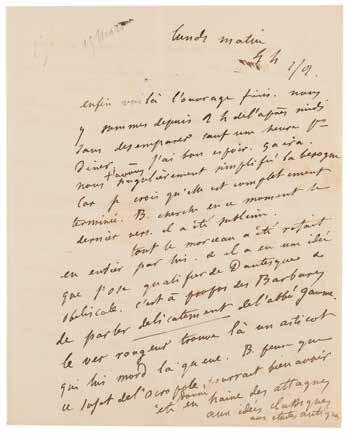 lundi matin
4 h 1/2.
enfin voilà l'ouvrage fini. nous
y sommes depuis 2 h de l'après midi
sans desemparer sauf une heure pr
diner. j'ai bon espoir.
nous singulièrement simplifié la besogne
car je crois qu'elle est completement
terminée. B. cherche en ce moment le
dernier vers. il a été sublime.
tout le morceau a été refait
en entier par lui. & il a eu une idée
que j'ose qualifier de Dantesque &
c'est à propos des Barbares
de parler délicatement de l'abbé Gaume.
le ver rongeur trouve là un asticot
qui lui mord la queue. B. pense que
ce sujet de l'acropole pourrait bien avoir
été en haine des attaques
aux idées classiques
aux études antiques